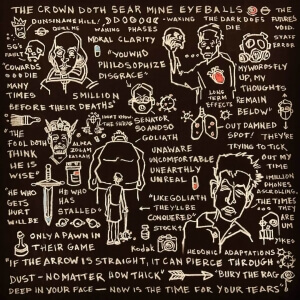 THE CROWN DOTH SEAR MINE EYEBALLS
DUNSINANE HILL/
WAXING PHASES
WAXING THE DARK DOES DIE
THE FUTURES VOID.
STATE
ERROR
MORAL CLARITY
5G'S
"YOU WHO
PHILOSOPHIZE
DISGRACE"
"COWARDS
DIE
MANY
TIMES
BEFORE THEIR DEATHS"
5 MILLION
LONG
TERM
EFFECTS
MY WORDS FLY
UP, MY
THOUGHTS
REMAIN
BELOW"
"THE
FOOL DOTH
THINK
HE IS
WISE"
SENATOR
SO AND SO
GOLIATH
UNAWARE
UNCOMFORTABLE
UNEARTHLY
UNREAL
OUT DAMNED
SPOT!
THEY'RE
TRYING TO
TICK
OUT MY
TIME
1 MILLION
PHONES
SCROLLING
"HE WHO
GETS
HURT
WILL BE
HE WHO
HAS
STALLED"
"LIKE GOLIATH
THEY'LL BE
CONQUERED"
STOCK
THE TIMES
THEY
ARE
UM
ONLY A PAWN IN
THEIR GAME
Kodak
HEDONIC ADAPTATIONS
"IF THE ARROW IS STRAIGHT, IT CAN PIERCE THROUGH
DUST - NO MATTER HOW THICK"
"BURY THE RAG
DEEP IN YOUR FACE - NOW IS THE TIME FOR YOUR TEARS"